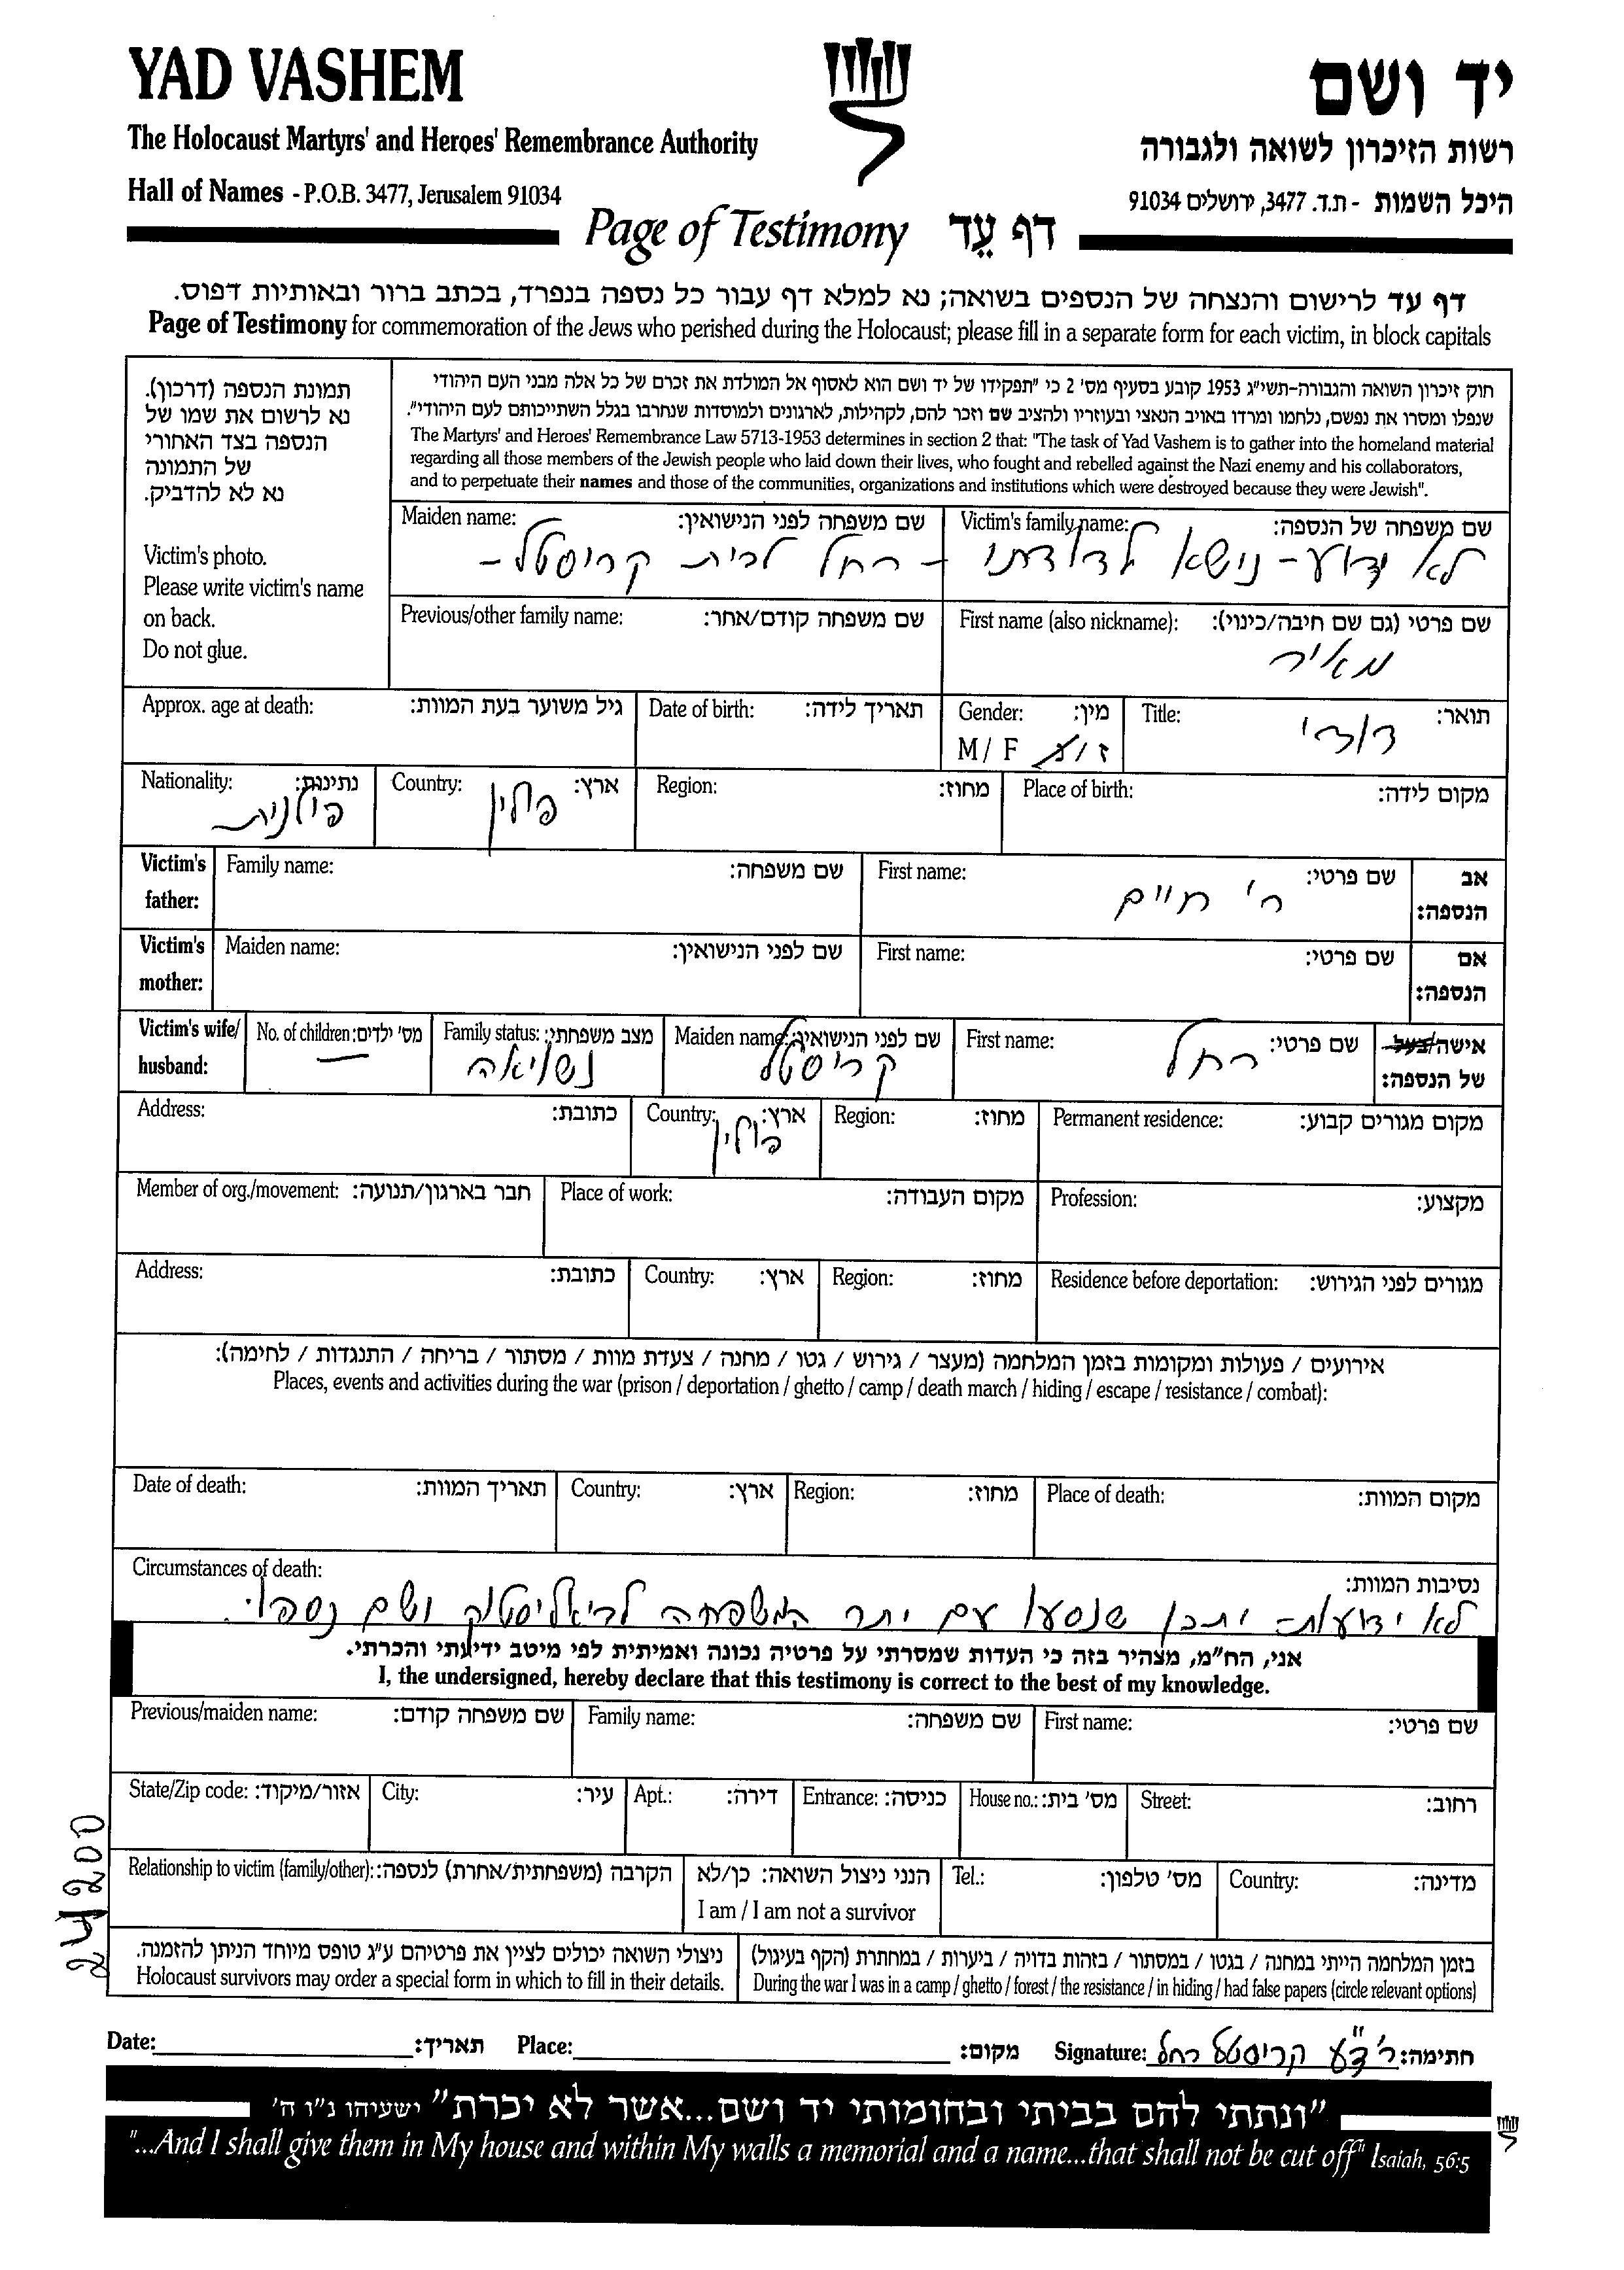 YAD VASHEM
יד ושם
The Holocaust Martyrs' and Heroes' Remembrance Authority
רשות הזיכרון לשואה ולגבורה
Hall of Names - P.O.B. 3477, Jerusalem 91034
היכל השמות - ת.ד. 3477, ירושלים 91034
Page of Testimony דף עֵד
דף עד לרישום והנצחה של הנספים בשואה; נא למלא דף עבור כל נספה בנפרד, בכתב ברור ובאותיות דפוס.
Page of Testimony for commemoration of the Jews who perished during the Holocaust; please fill in a separate form for each victim, in block capitals
תמונת הנספה (דרכון).
נא לרשום את שמו של
הנספה בצד האחורי
של התמונה
נא לא להדביק.
Victim's photo.
Please write victim's name
on back.
Do not glue.
חוק זיכרון השואה והגבורה-תשי"ג 1953 קובע בסעיף מס' 2 כי "תפקידו של יד ושם הוא לאסוף אל המולדת את זכרם של כל אלה מבני העם היהודי
שנפלו ומסרו את נפשם, נלחמו ומרדו באויב הנאצי ובעוזריו ולהציב שם וזכר להם, לקהילות, לארגונים ולמוסדות שנחרבו בגלל השתייכותם לעם היהודי".
The Martyrs' and Heroes' Remembrance Law 5713-1953 determines in section 2 that: "The task of Yad Vashem is to gather into the homeland material
regarding all those members of the Jewish people who laid down their lives, who fought and rebelled against the Nazi enemy and his collaborators,
and to perpetuate their names and those of the communities, organizations and institutions which were destroyed because they were Jewish".
שם משפחה של הנספה: Victim's family name:
שם משפחה לפני הנישואין: Maiden name:
לא ידוע - נישא לדודתי - רחל לבית קריסטל -
שם פרטי (גם שם חיבה/כינוי): First name (also nickname):
מאיר
שם משפחה קודם/אחר: Previous/other family name:
תואר: Title:
דודי
מין: Gender:
ז/נ M/ F
תאריך לידה: Date of birth:
גיל משוער בעת המוות: Approx. age at death:
מקום לידה: Place of birth:
מחוז: Region:
ארץ: Country:
פולין
נתינות: Nationality:
פולנית
אב
הנספה:
שם פרטי: First name:
ר' חיים
שם משפחה: Family name:
Victim's
father:
אם
הנספה:
שם פרטי: First name:
שם לפני הנישואין: Maiden name:
Victim's
mother:
אישה/בעל
של הנספה:
שם פרטי: First name:
רחל
שם לפני הנישואין: Maiden name:
קריסטל
מצב משפחתי: Family status:
נשואה
מס' ילדים: No. of children:
—
Victim's wife/
husband:
מקום מגורים קבוע: Permanent residence:
מחוז: Region:
ארץ: Country:
פולין
כתובת: Address:
מקצוע: Profession:
מקום העבודה: Place of work:
חבר בארגון/תנועה: Member of org./movement:
מגורים לפני הגירוש: Residence before deportation:
מחוז: Region:
ארץ: Country:
כתובת: Address:
אירועים / פעולות ומקומות בזמן המלחמה (מעצר / גירוש / גטו / מחנה / צעדת מוות / מסתור / בריחה / התנגדות / לחימה):
Places, events and activities during the war (prison / deportation / ghetto / camp / death march / hiding / escape / resistance / combat):
מקום המוות: Place of death:
מחוז: Region:
ארץ: Country:
תאריך המוות: Date of death:
נסיבות המוות: Circumstances of death:
לא ידועות - יתכן שנסעו עם יתר המשפחה לביאליסטוק ושם נספו.
אני, הח"מ, מצהיר בזה כי העדות שמסרתי על פרטיה נכונה ואמיתית לפי מיטב ידיעתי והכרתי.
I, the undersigned, hereby declare that this testimony is correct to the best of my knowledge.
שם פרטי: First name:
שם משפחה: Family name:
שם משפחה קודם: Previous/maiden name:
רחוב: Street:
מס' בית: House no.:
כניסה: Entrance:
דירה: Apt.:
עיר: City:
אזור/מיקוד: State/Zip code:
מדינה: Country:
מס' טלפון: Tel.:
הנני ניצול השואה: כן/לא
I am / I am not a survivor
הקרבה (משפחתית/אחרת) לנספה: Relationship to victim (family/other):
בזמן המלחמה הייתי במחנה / בגטו / במסתור / בזהות בדויה / ביערות / במחתרת (הקף בעיגול)
During the war I was in a camp / ghetto / forest / the resistance / in hiding / had false papers (circle relevant options)
ניצולי השואה יכולים לציין את פרטיהם ע"ג טופס מיוחד הניתן להזמנה.
Holocaust survivors may order a special form in which to fill in their details.
24200
Date: תאריך: Place: מקום: Signature: חתימה:
קריסטל רחל
"ונתתי להם בביתי ובחומותי יד ושם...אשר לא יכרת" ישעיהו נ"ו ה'
"...And I shall give them in My house and within My walls a memorial and a name...that shall not be cut off" Isaiah, 56:5